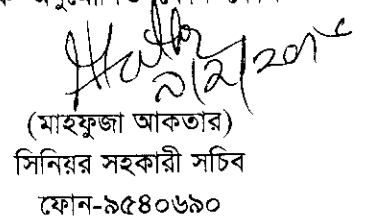 ৯/২/২০১৫
(মাহফুজা আকতার)
সিনিয়র সহকারী সচিব
ফোন-৯৫৪০৬৯০